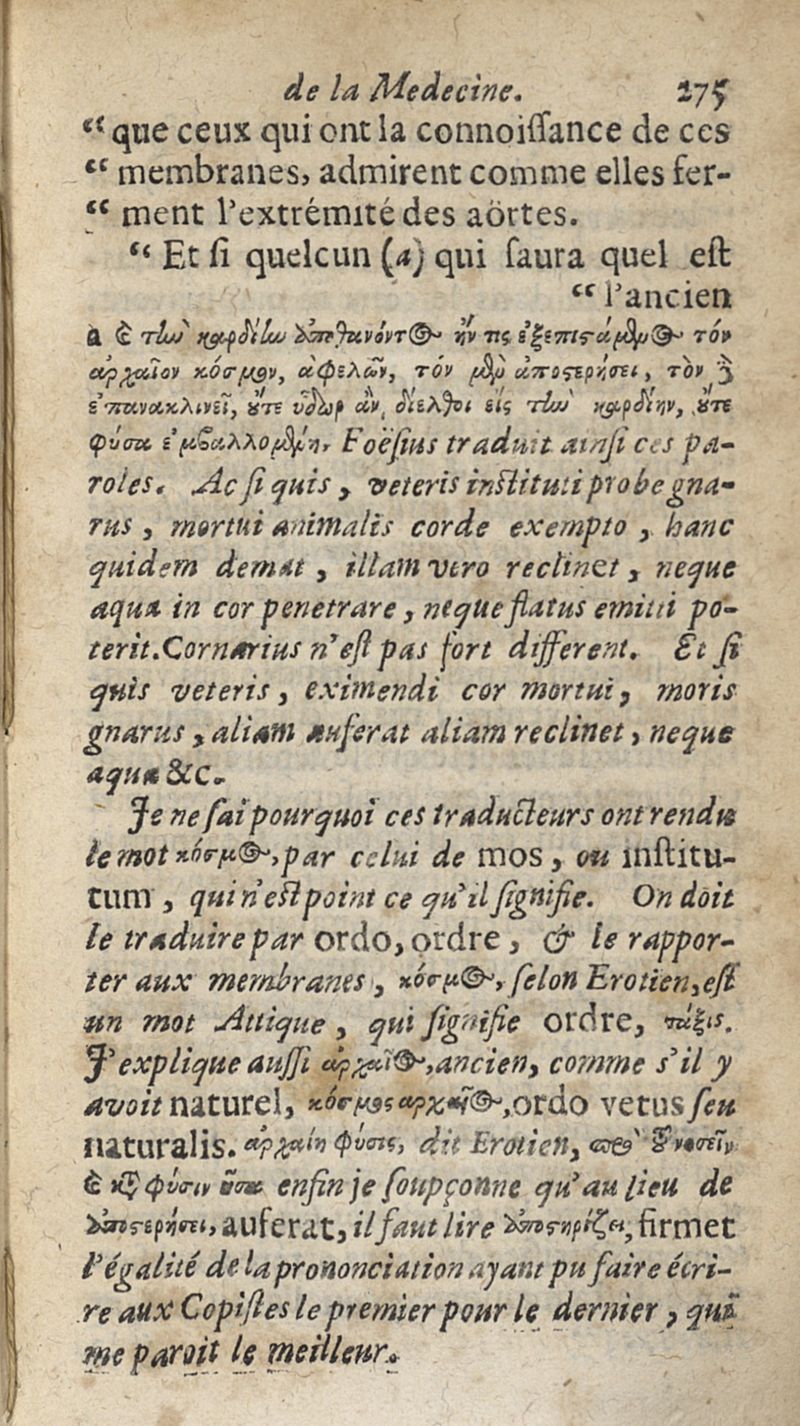 de la Medecine. 275
“ que ceux qui ont la connoiſſance de ces
“ membranes, admirent comme elles fer-
“ ment l'extrémité des aörtes.
“ Et ſi quelcun (a) qui ſaura quel eſt
“ l'ancien
a ἐ τὴν καρδίην ἀποθανόντος ἤν τις ἐξεπιστάμενος τόν
ἀρχαῖον κόσμον, ἀφελῶν, τόν μὲν ἀποστερήσει, τὸν δὲ
ἐπανακλινεῖ, οὔτε ὕδωρ ἂν διέλθοι εἰς τὴν καρδίην, οὔτε
φύσα ἐμβαλλομένη, Foëſius traduit ainſi ces pa-
roles. Ac ſi quis, veteris inſtituti probe gna-
rus, mortui animalis corde exempto, hanc
quidem demat, illam vero reclinet, neque
aqua in cor penetrare, neque flatus emitti po-
terit. Cornarius n'eſt pas fort different. Et ſi
quis veteris, eximendi cor mortui, moris
gnarus, aliam auferat aliam reclinet, neque
aqua &c.
Je ne ſai pourquoi ces traducteurs ont rendu
le mot κόσμος, par celui de mos, ou inſtitu-
tum, qui n'eſt point ce qu'il ſignifie. On doit
le traduire par ordo, ordre, & le rappor-
ter aux membranes, κόσμος, ſelon Erotien, eſt
un mot Attique, qui ſignifie ordre, τάξις.
J'explique auſſi ἀρχαῖος, ancien, comme s'il y
avoit naturel, κόσμος ἀρχαῖος, ordo vetus ſeu
naturalis. ἀρχαίη φύσις, dit Erotien,
ἐ κατὰ φύσιν οὖσα enfin je ſoupçonne qu'au lieu de
ἀποστερήσει, auferat, il faut lire ἀποστηρίζει, firmet
l'égalité de la prononciation ayant pu faire écri-
re aux Copiſtes le premier pour le dernier, qui
me paroit le meilleur.